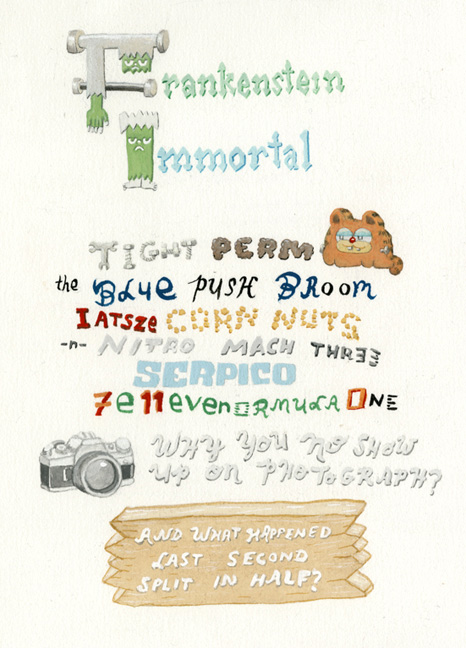 Frankenstein
Immortal
TIGHT PERM
the BLUE PUSH BROOM
IATSZE CORN NUTS
-n- NITRO MACH THREE
SERPICO
7e11evenORMULA ONE
WHY YOU NO SHOW
UP ON PHOTOGRAPH?
AND WHAT HAPPENED
LAST SECOND
SPLIT IN HALF?